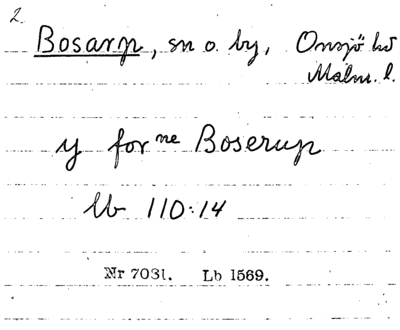 2.
Bosarp, sn o. by, Onsjö hd
Malm. l.
y for ne Boserup
lb 110:14
Nr 7031. Lb 1569.